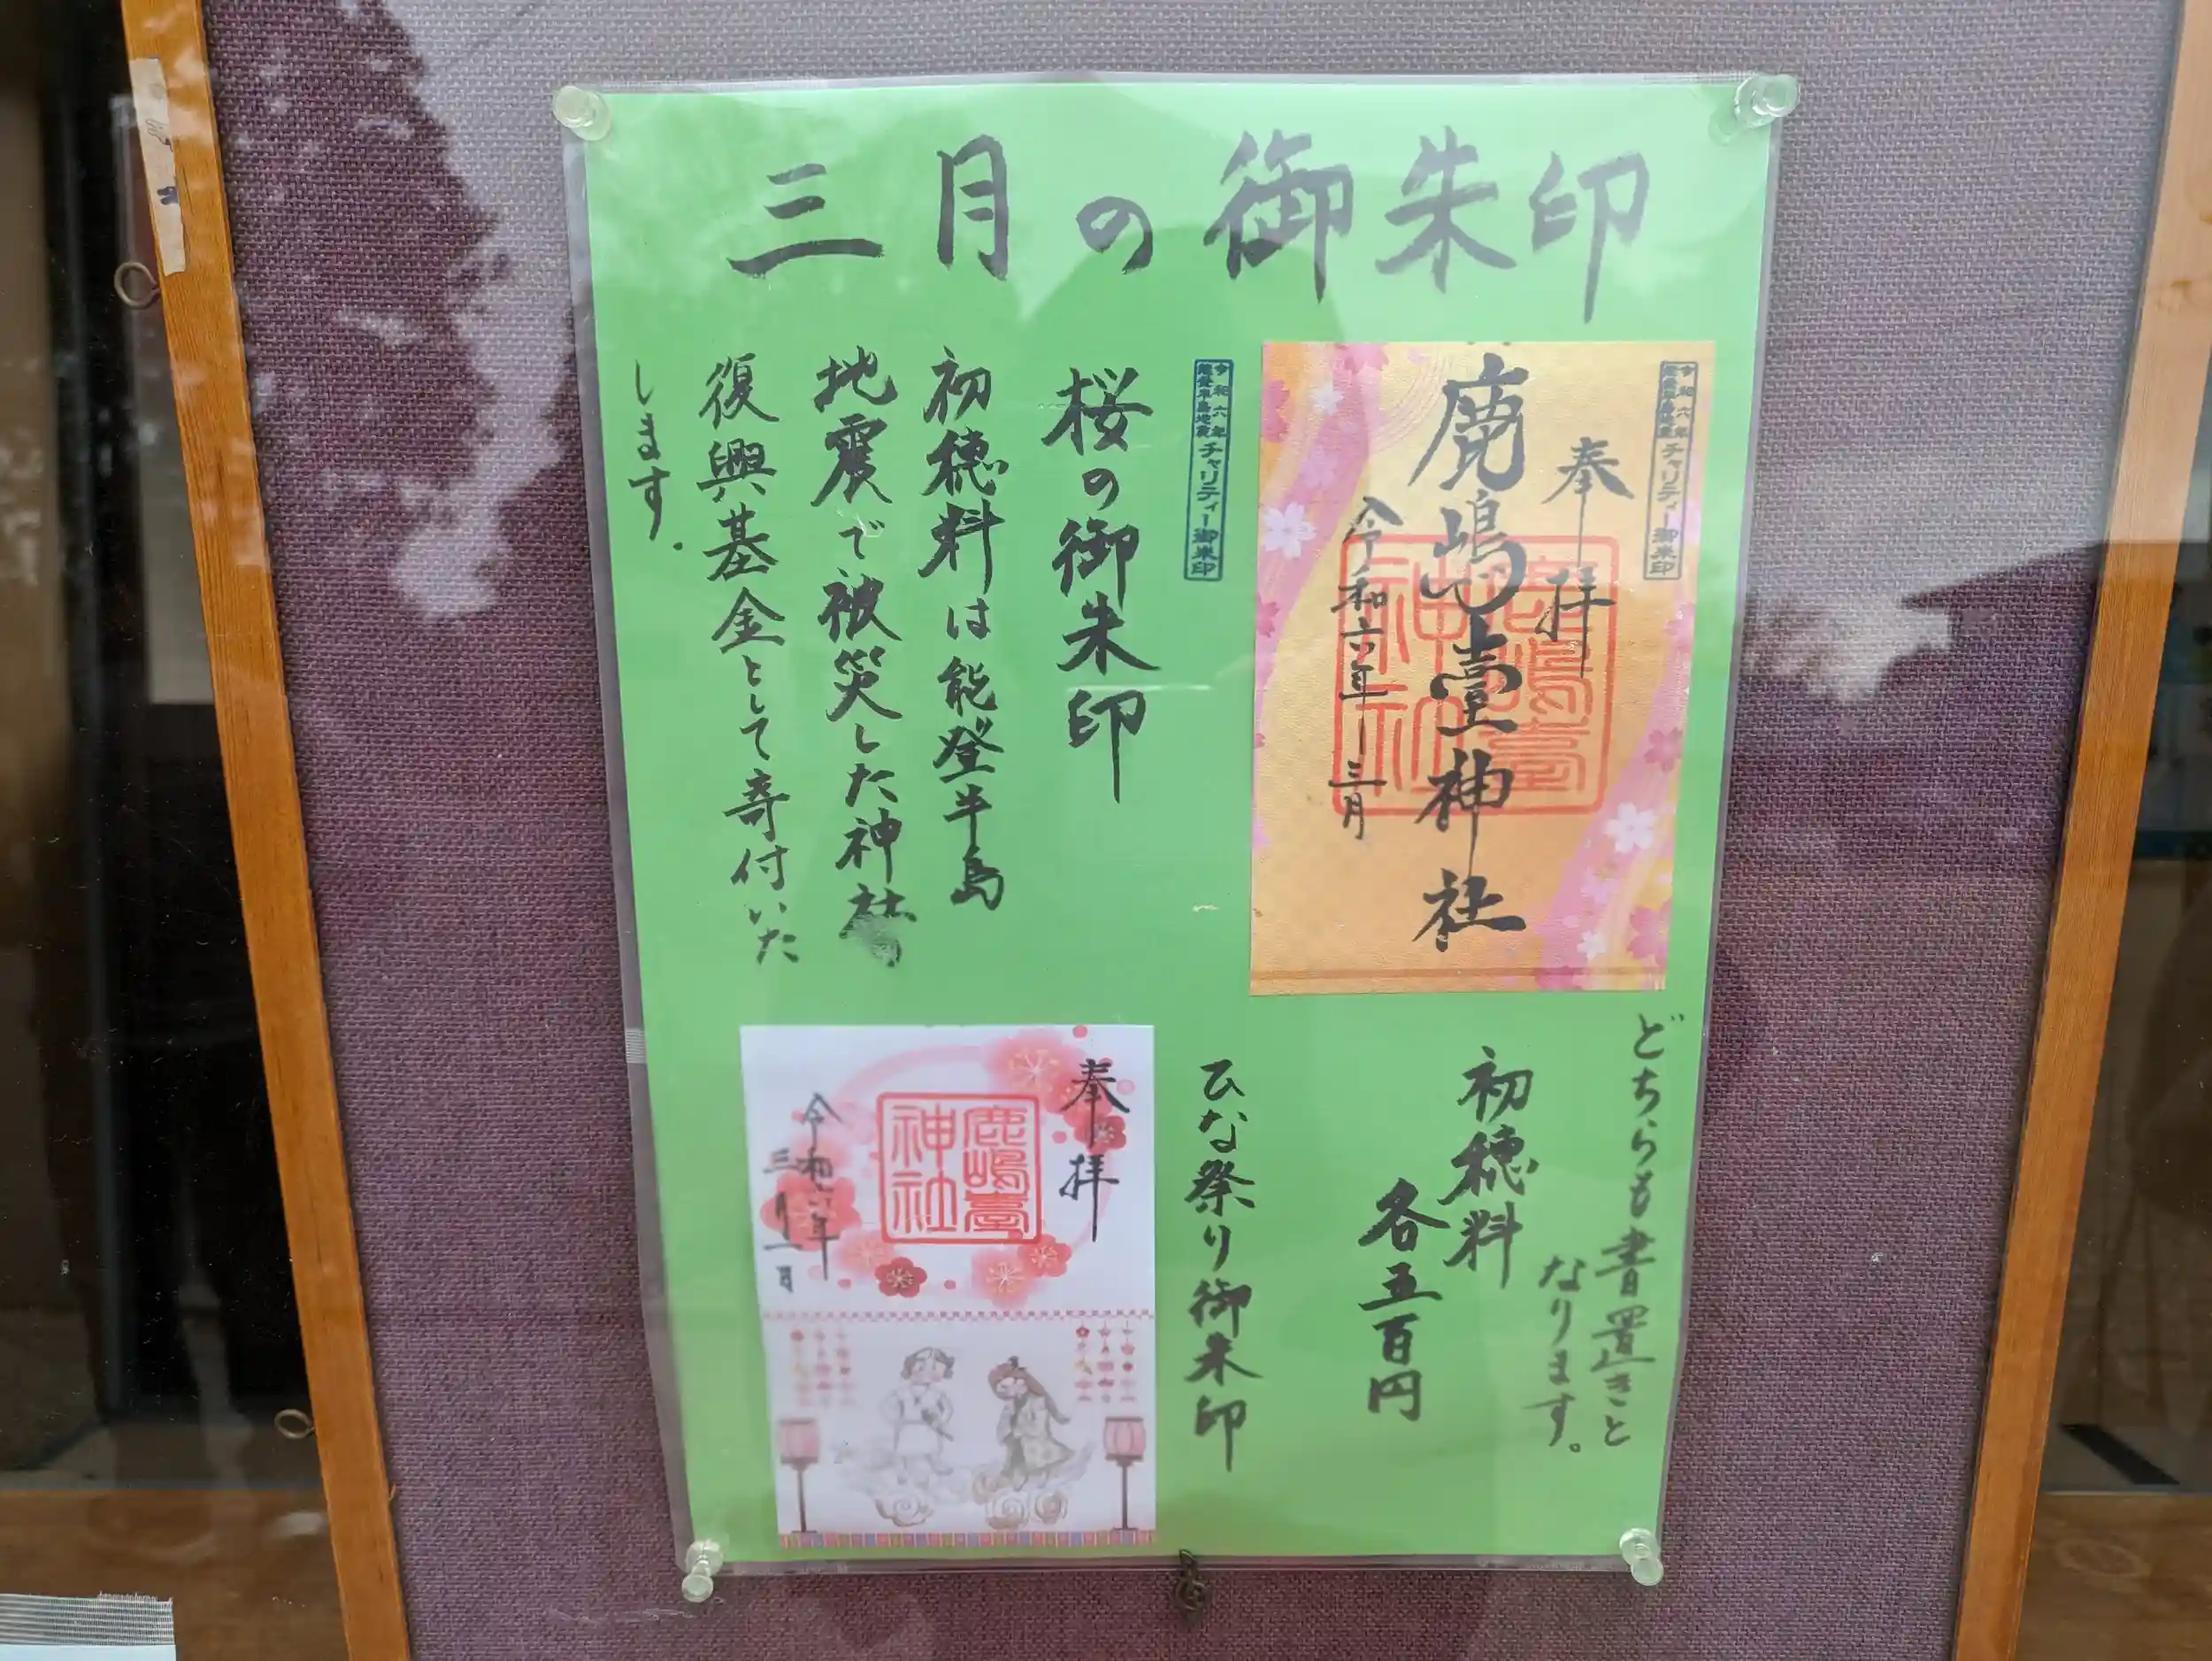 三月の御朱印
令和六年
能登半島地震
チャリティー御朱印
奉拝
鹿嶋臺神社
令和六年三月
令和六年
能登半島地震
チャリティー御朱印
桜の御朱印
初穂料は能登半島
地震で被災した神社
復興基金として寄付いた
します。
どちらも書置きと
なります。
初穂料
各五百円
ひな祭り御朱印
奉拝
鹿嶋臺
神社
令和六年
三月